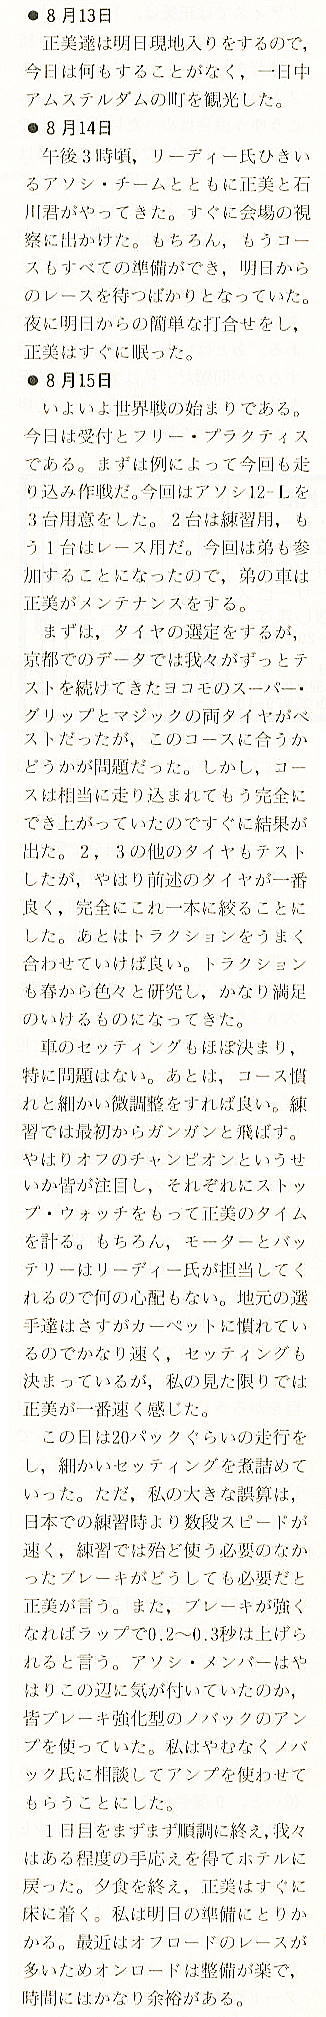 ● 8月13日
正美達は明日現地入りをするので，
今日は何もすることがなく，一日中
アムステルダムの町を観光した。
● 8月14日
午後3時頃，リーディー氏ひきい
るアソシ・チームとともに正美と石
川君がやってきた。すぐに会場の視
察に出かけた。もちろん，もうコー
スもすべての準備ができ，明日から
のレースを待つばかりとなっていた。
夜に明日からの簡単な打合せをし，
正美はすぐに眠った。
● 8月15日
いよいよ世界戦の始まりである。
今日は受付とフリー・プラクティス
である。まずは例によって今回も走
り込み作戦だ。今回はアソシ12-Lを
3台用意をした。2台は練習用，も
う1台はレース用だ。今回は弟も参
加することになったので，弟の車は
正美がメンテナンスをする。
まずは，タイヤの選定をするが，
京都でのデータでは我々がずっとテ
ストを続けてきたヨコモのスーパー・
グリップとマジックの両タイヤがベ
ストだったが，このコースに合うか
どうかが問題だった。しかし，コー
スは相当に走り込まれてもう完全に
でき上がっていたのですぐに結果が
出た。2，3の他のタイヤもテスト
したが，やはり前述のタイヤが一番
良く，完全にこれ一本に絞ることに
した。あとはトラクションをうまく
合わせていけば良い。トラクション
も春から色々と研究し，かなり満足
のいけるものになってきた。
車のセッティングもほぼ決まり，
特に問題はない。あとは，コース慣
れと細かい微調整をすれば良い。練
習では最初からガンガンと飛ばす。
やはりオフのチャンピオンというせ
いか皆が注目し，それぞれにストッ
プ・ウォッチをもって正美のタイム
を計る。もちろん，モーターとバッ
テリーはリーディー氏が担当してく
れるので何の心配もない。地元の選
手達はさすがカーペットに慣れてい
るのでかなり速く，セッティングも
決まっているが，私の見た限りでは
正美が一番速く感じた。
この日は20パックぐらいの走行を
し，細かいセッティングを煮詰めて
いった。ただ，私の大きな誤算は，
日本での練習時より数段スピードが
速く，練習では殆ど使う必要のなか
ったブレーキがどうしても必要だと
正美が言う。また，ブレーキが強く
なればラップで0.2〜0.3秒は上げら
れると言う。アソシ・メンバーはや
はりこの辺に気が付いていたのか，
皆ブレーキ強化型のノバックのアン
プを使っていた。私はやむなくノバ
ック氏に相談してアンプを使わせて
もらうことにした。
1日目をまずまず順調に終え，我々
はある程度の手応えを得てホテルに
戻った。夕食を終え，正美はすぐに
床に着く。私は明日の準備にとりか
かる。最近はオフロードのレースが
多いためオンロードは整備が楽で，
時間にはかなり余裕がある。